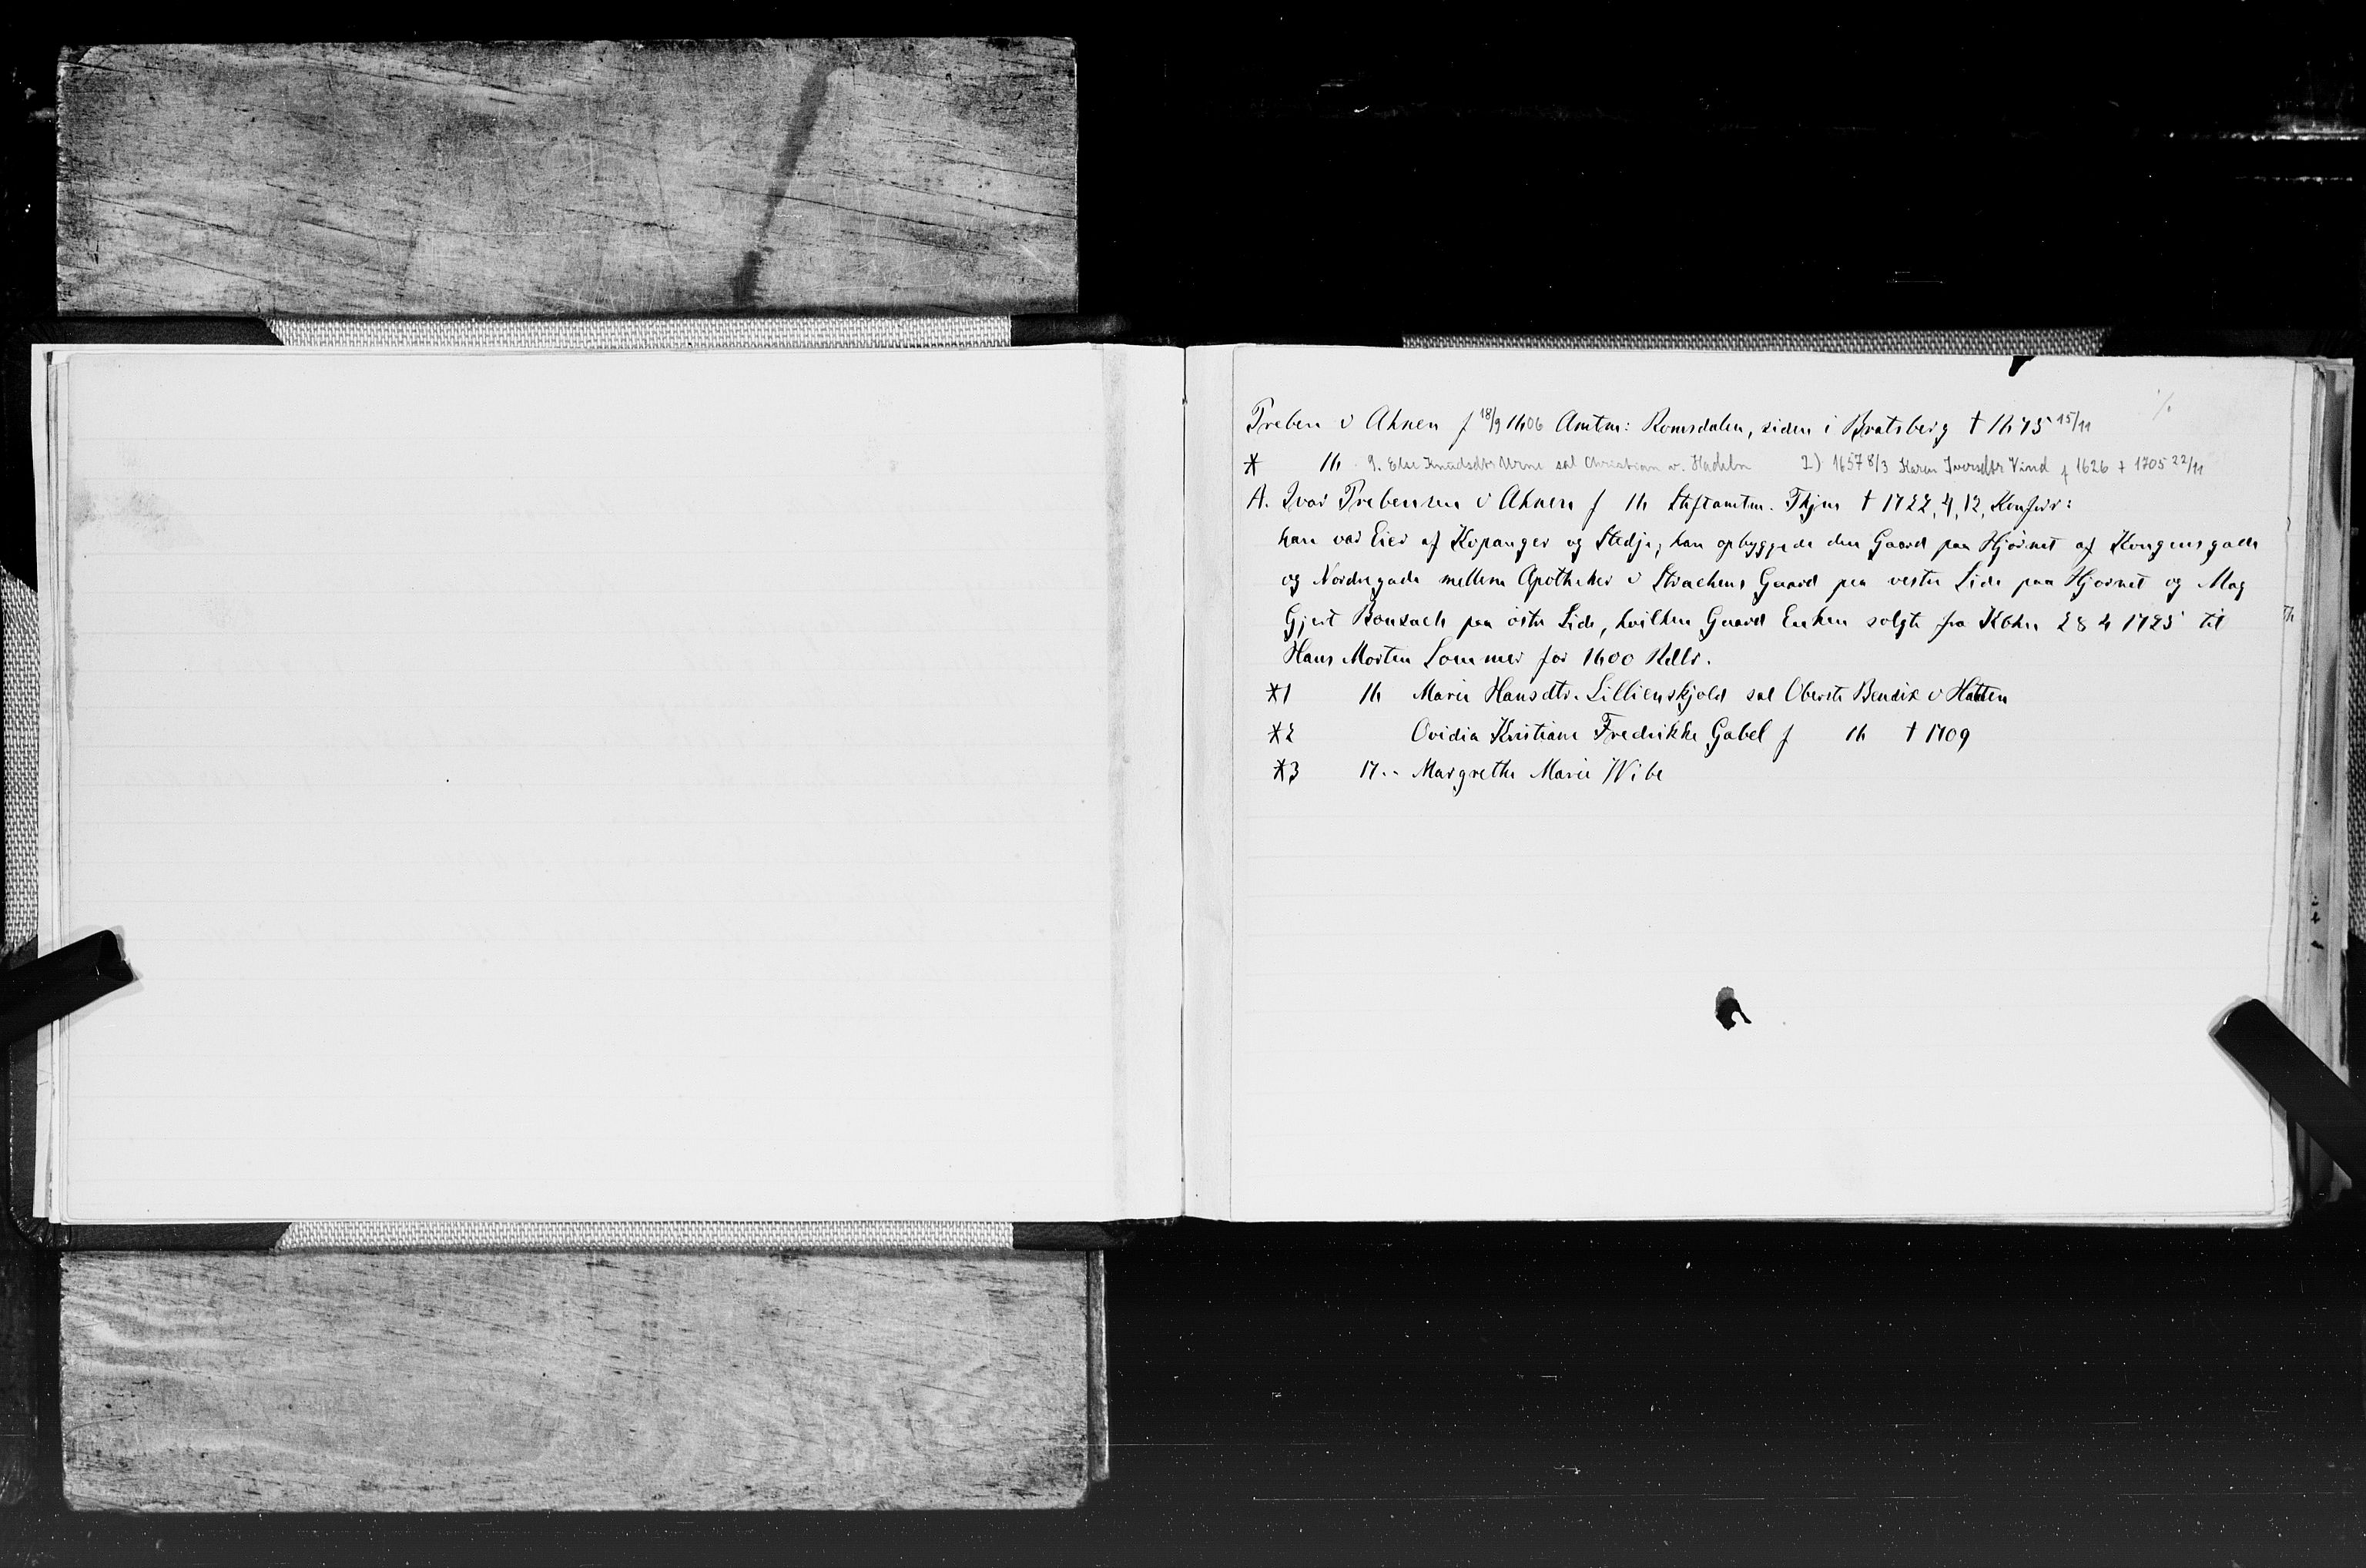 Preben v Ahnen f 18/9 1606 Amtm: Romsdalen, siden i Bratsberg † 1675 15/11
* 16 1. Else Knudsdtr Urne sal Christian v. Hadeln 2) 1657 8/3 Karen Iversdtr Vind f 1626 † 1705 22/11
A. Ivar Prebensen v Ahnen f 16 Stiftamtm. Thjm † 1722, 4, 12, Konfrr:
han var Eier af Kopanger og Stedje; han opbyggede den Gaard paa Hjörnet af Kongensgade
og Nordregade mellem Apotheker v Strachens Gaard paa vestre Side paa Hjornet og Mag
Gjert Bonsach paa östre Side, hvilken Gaard Enken solgte fra Kbhn 28 4 1725 til
Hans Morten Sommer for 1600 Rdlr.
*1 16 Marie Hansdtr. Lillienskjold sal Oberste Bendix v Hatten
*2 Ovidia Kristiane Fredrikke Gabel f 16 † 1709
*3 17.. Margrethe Marie Wibe